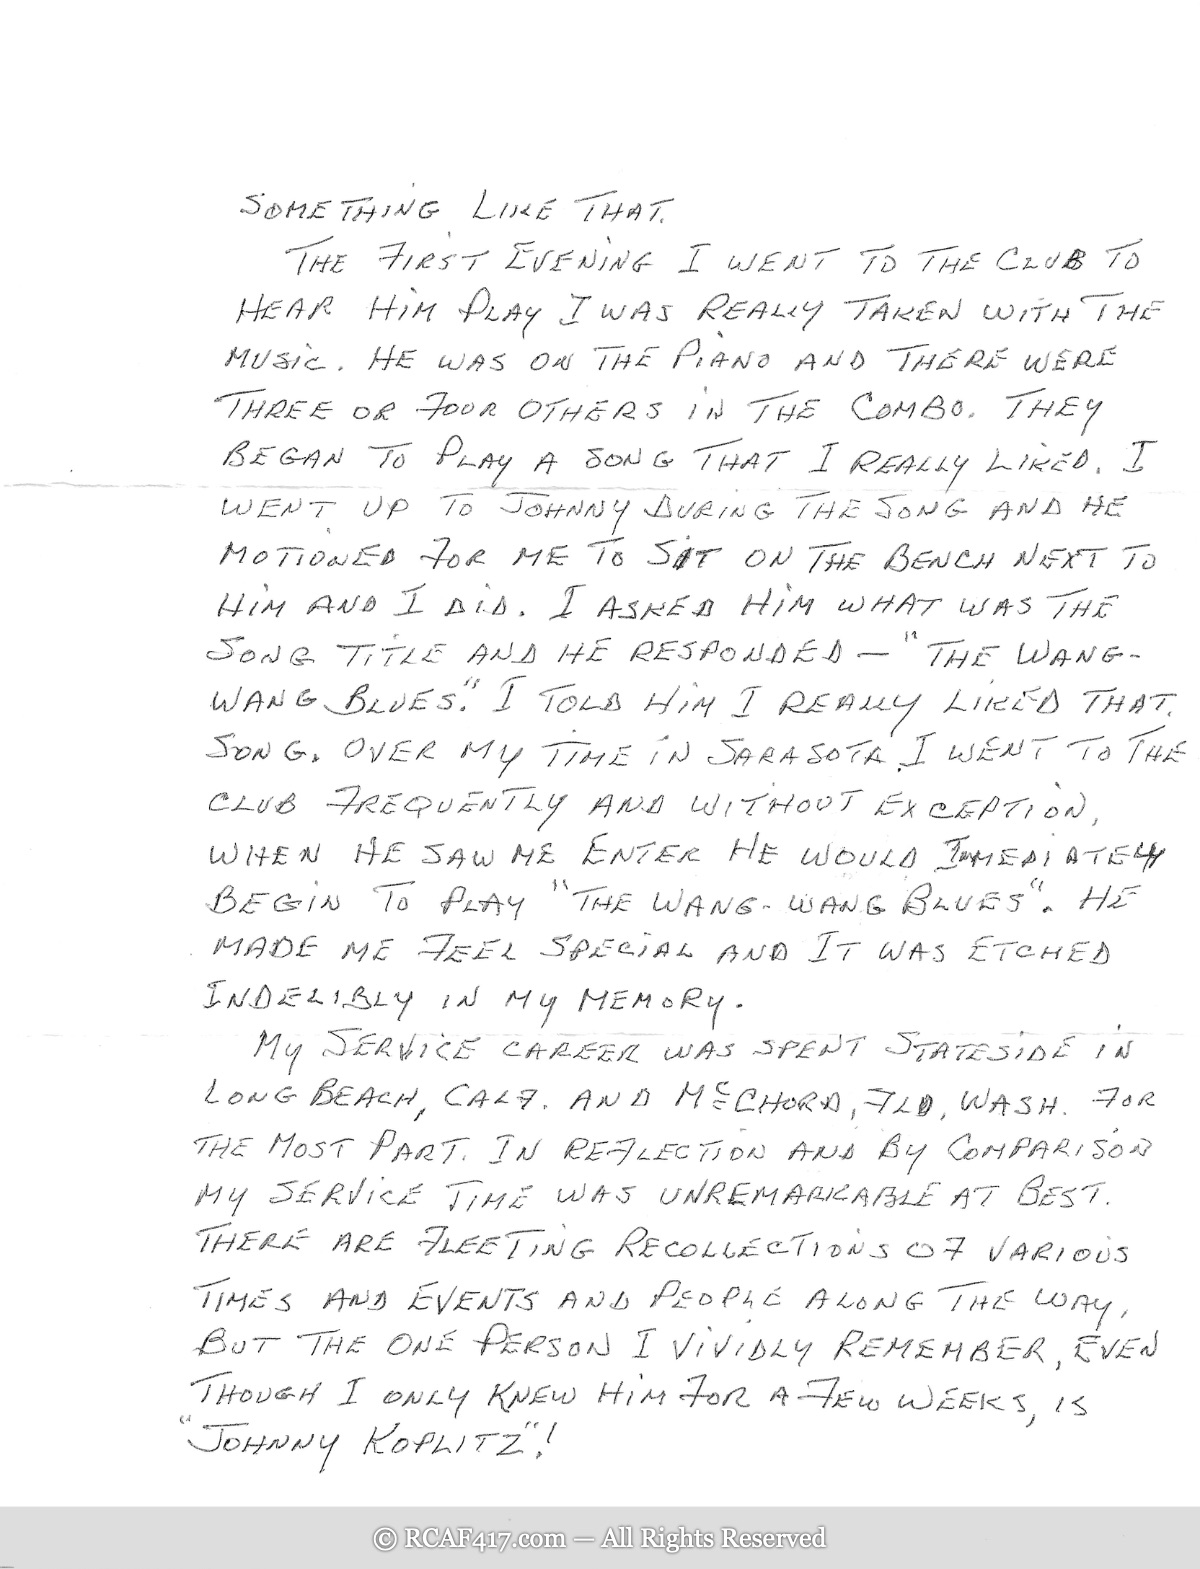 SOMETHING LIKE THAT.
THE FIRST EVENING I WENT TO THE CLUB TO
HEAR HIM PLAY I WAS REALLY TAKEN WITH THE
MUSIC. HE WAS ON THE PIANO AND THERE WERE
THREE OR FOUR OTHERS IN THE COMBO. THEY
BEGAN TO PLAY A SONG THAT I REALLY LIKED. I
WENT UP TO JOHNNY DURING THE SONG AND HE
MOTIONED FOR ME TO SIT ON THE BENCH NEXT TO
HIM AND I DID. I ASKED HIM WHAT WAS THE
SONG TITLE AND HE RESPONDED — "THE WANG-
WANG BLUES". I TOLD HIM I REALLY LIKED THAT.
SONG. OVER MY TIME IN SARASOTA, I WENT TO THE
CLUB FREQUENTLY AND WITHOUT EXCEPTION,
WHEN HE SAW ME ENTER HE WOULD IMMEDIATELY
BEGIN TO PLAY "THE WANG-WANG BLUES". HE
MADE ME FEEL SPECIAL AND IT WAS ETCHED
INDELIBLY IN MY MEMORY.
MY SERVICE CAREER WAS SPENT STATESIDE IN
LONG BEACH, CALF. AND McCHORD, FLD, WASH. FOR
THE MOST PART. IN REFLECTION AND BY COMPARISON
MY SERVICE TIME WAS UNREMARKABLE AT BEST.
THERE ARE FLEETING RECOLLECTIONS OF VARIOUS
TIMES AND EVENTS AND PEOPLE ALONG THE WAY,
BUT THE ONE PERSON I VIVIDLY REMEMBER, EVEN
THOUGH I ONLY KNEW HIM FOR A FEW WEEKS, IS
"JOHNNY KOPLITZ"!
© RCAF417.com — All Rights Reserved